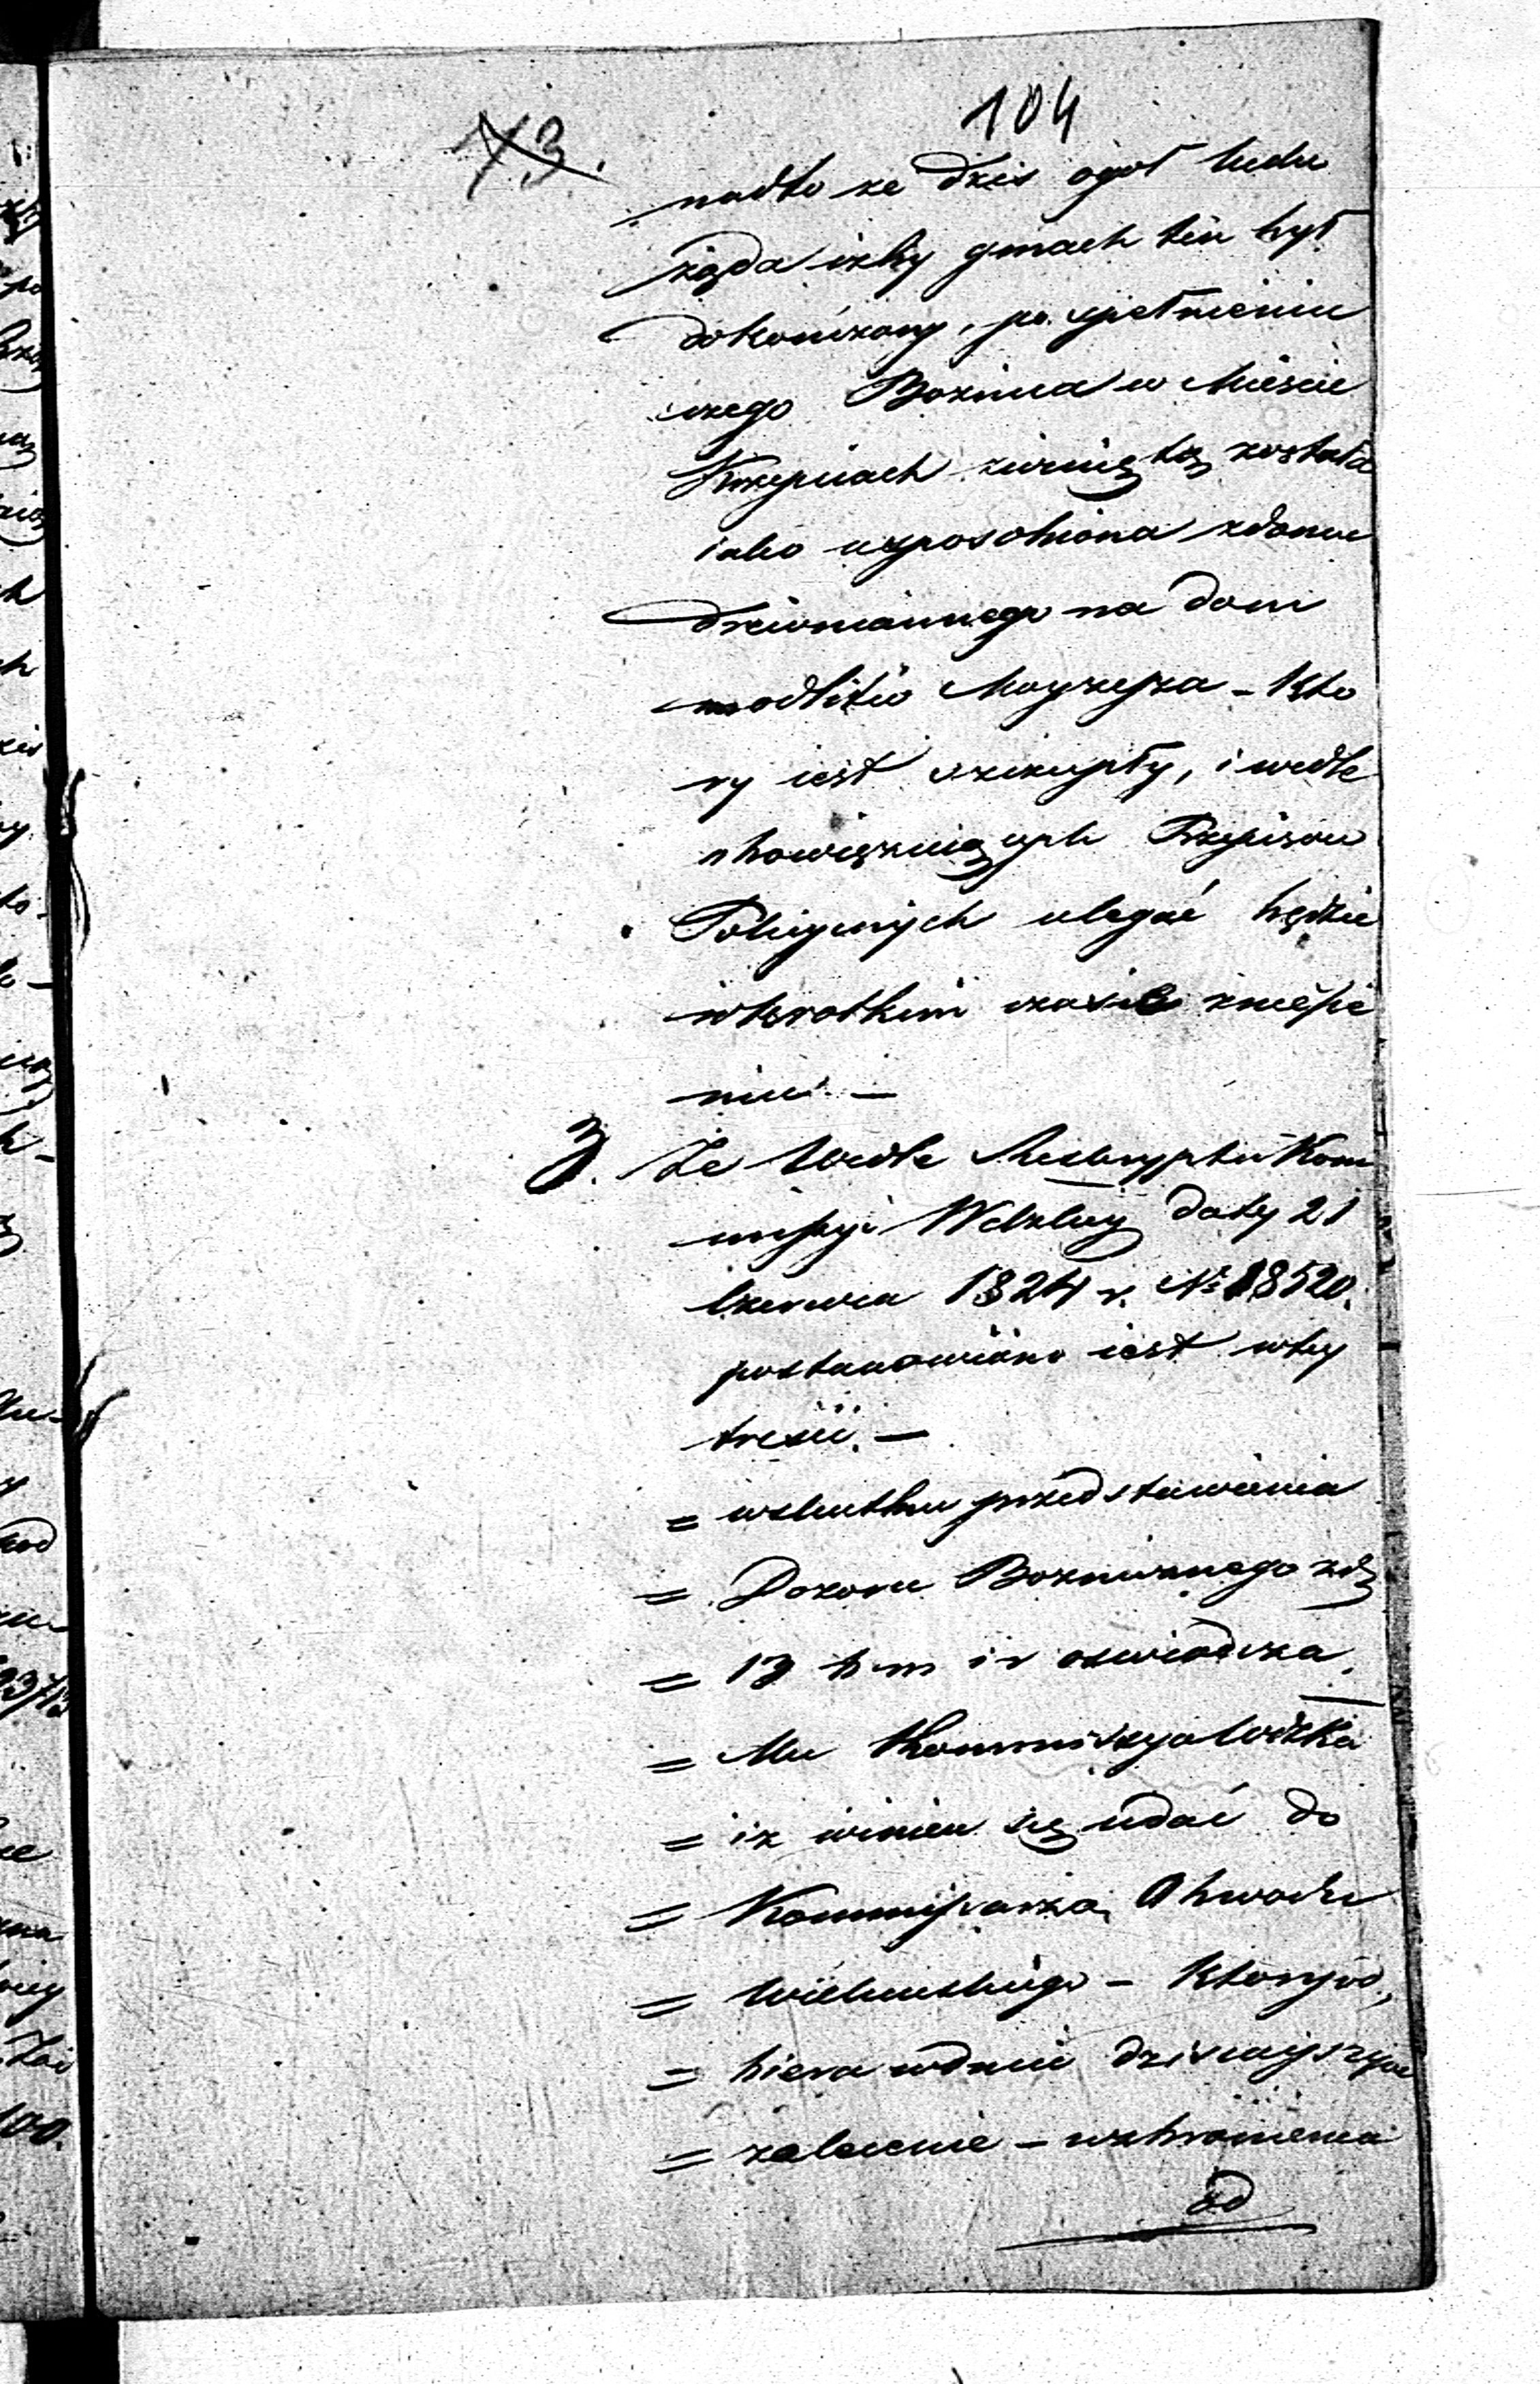 104
73.
nadto ze dzis ogoł ludu
żąda izby gmach ten był
dokończony, po spełnieniu
czego Boznica w Mieście
Krzepicach zwinięta została
iako usposobiona zdomu
drewniannego na dom
modlitw Moyzesza – Kto
ry iest szczupły, i wedle
obowięzuiących Przepisow
Policyinych ulegać będzie
wkrotkim czasie zniesie
niu. –
3. Ze wedle Reskryptu Kom
missyi Wdzkiey daty 21
Czerwca 1824 r. N: 18520.
postanowiono iest wtey
tresci. –
= wskutku przedstawienia
= Dozoru Bozniczego zd
= 13 b m i r oswiadcza
= Mu Kommissya Wdzka
= iz winien się udać do
= Kommissarza Obwodu
= Wieluńskiego – Ktory od,
= biera wdniu dzisieyszym
= zalecenie – wzbronienia
od